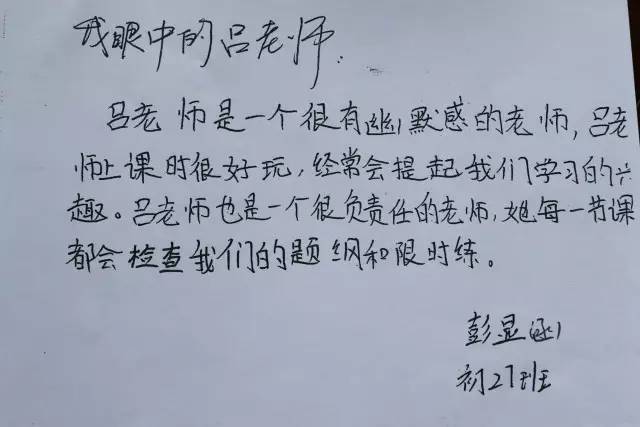 我眼中的吕老师.
吕老师是一个很有幽默感的老师,吕老
师上课时很好玩,经常会提起我们学习的兴
趣。吕老师也是一个很负责任的老师,她每一节课
都会检查我们的题纲和限时练。
彭显涵
初27班